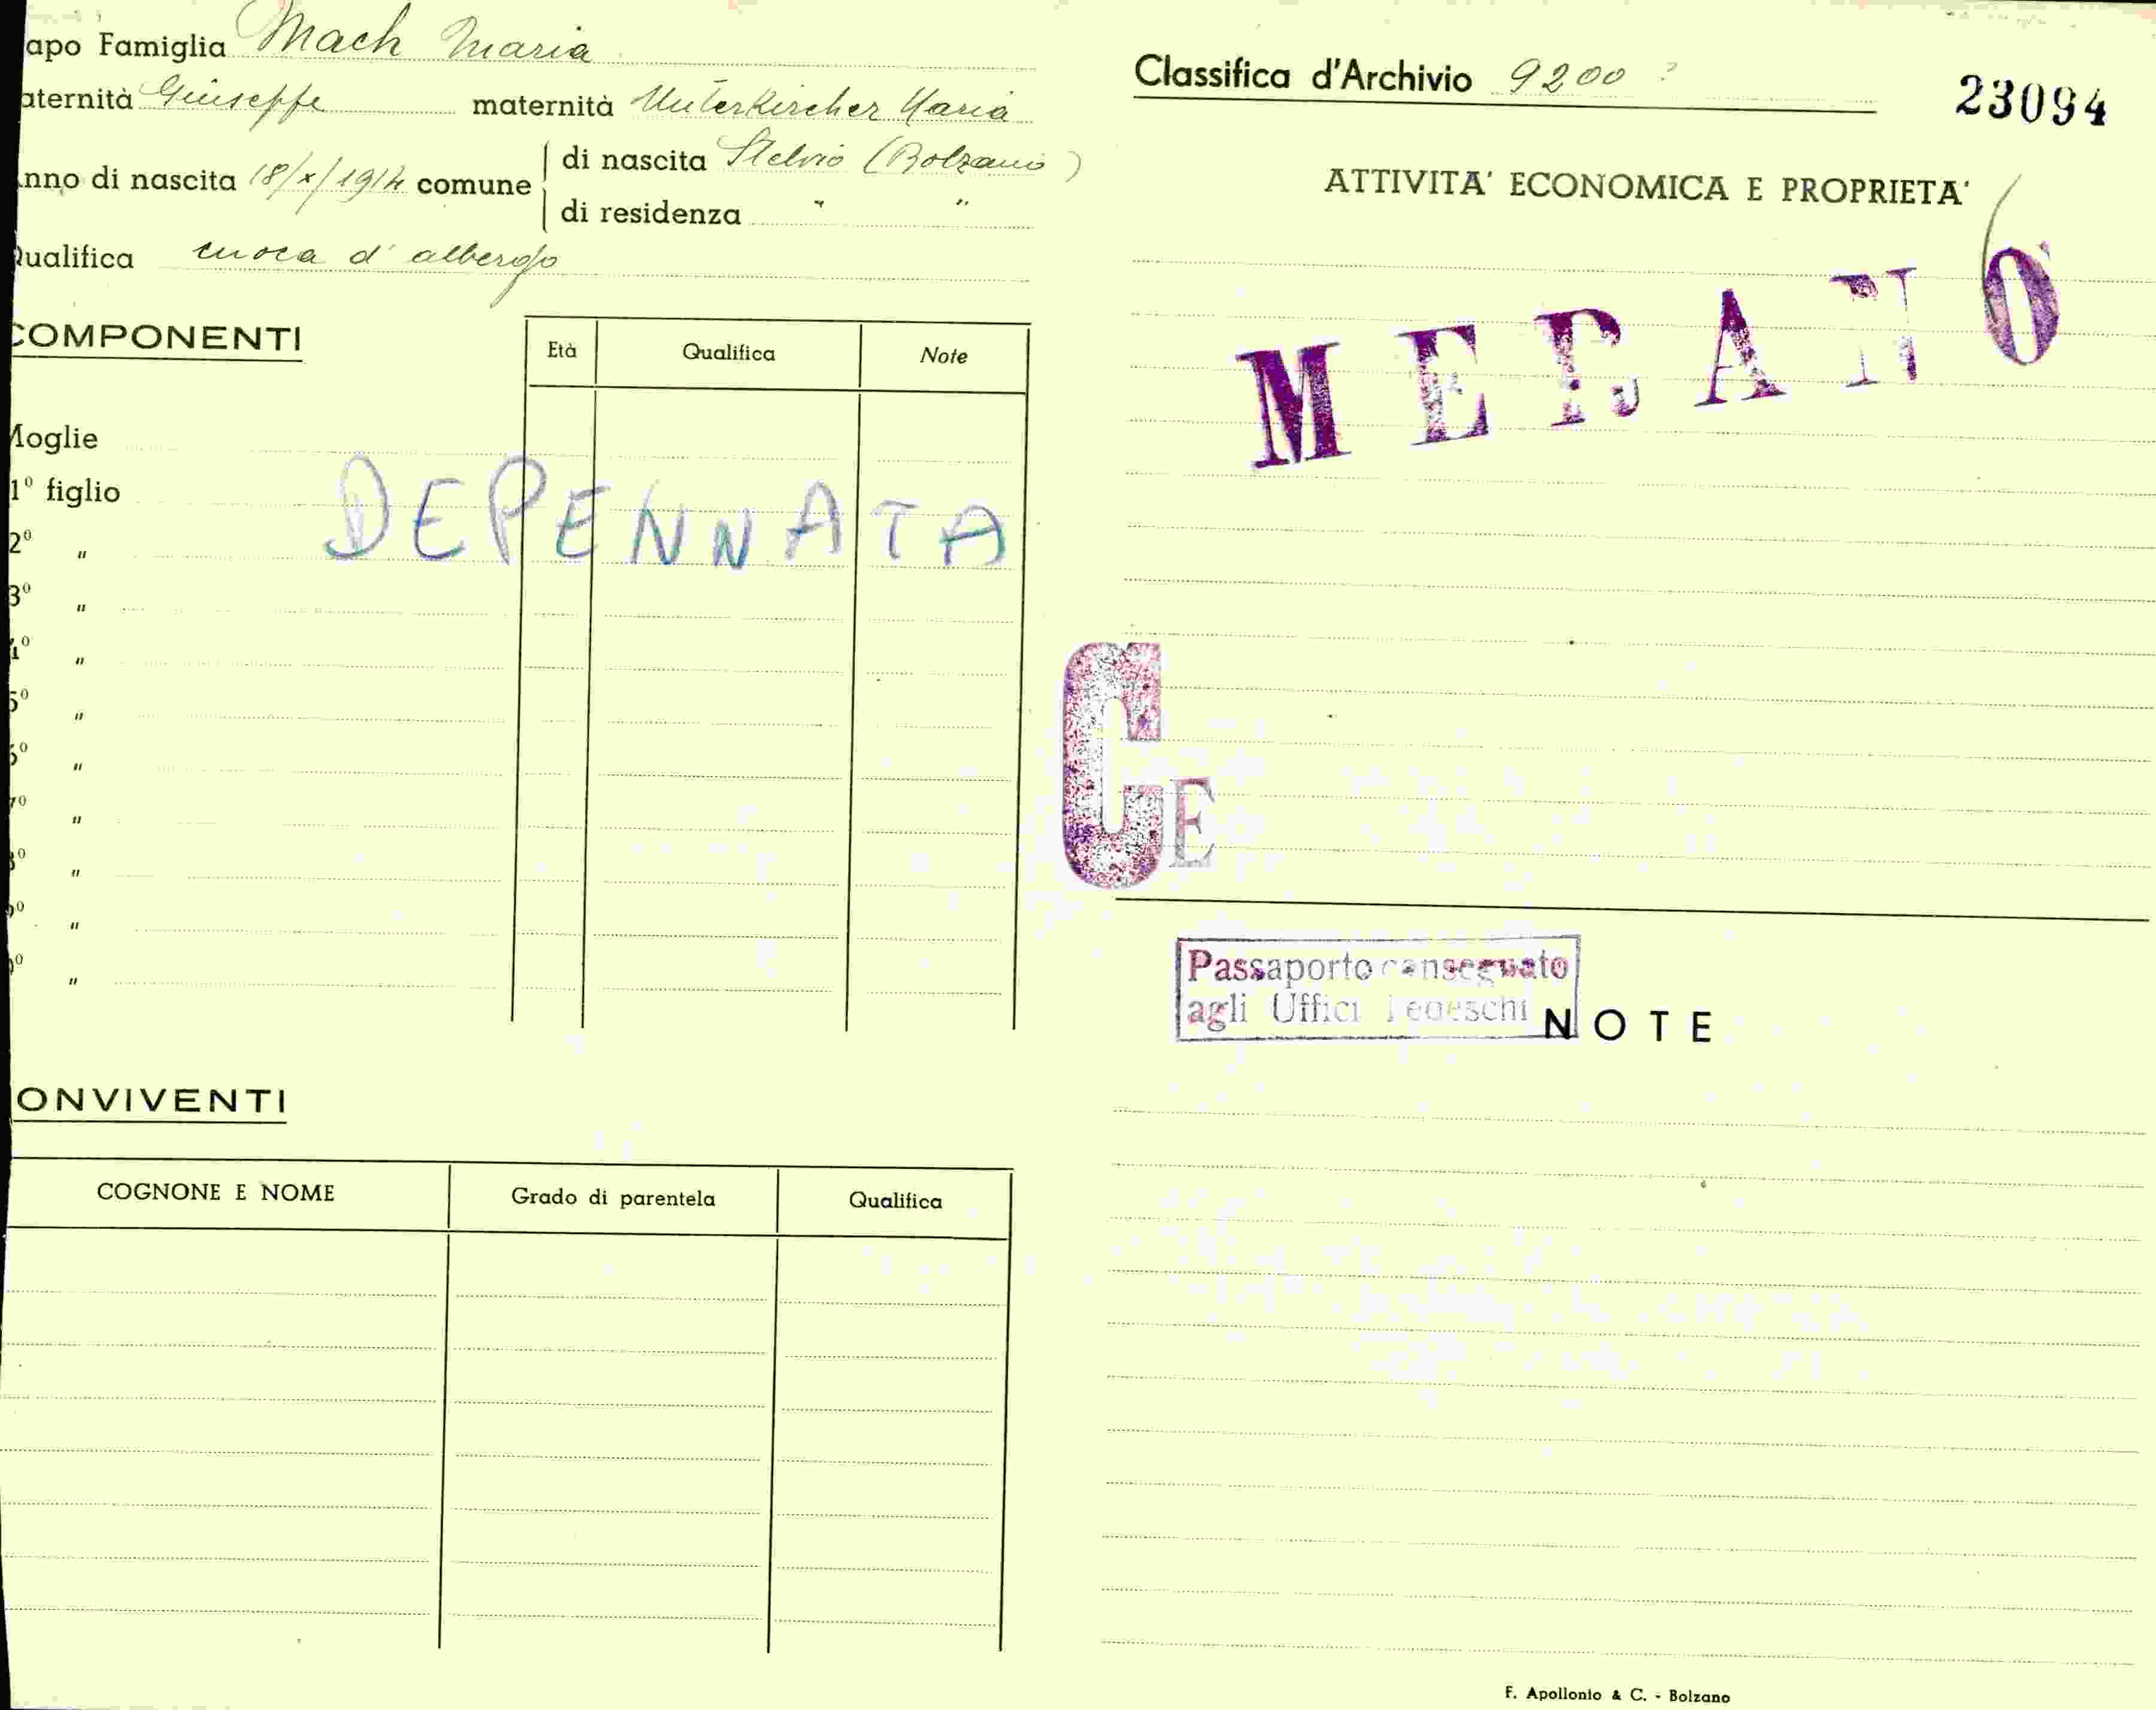 apo Famiglia Mach Maria
aternità Giuseppe maternità Unterkircher Maria
nno di nascita 18/x/1914 comune di nascita Stelvio (Bolzano)
di residenza " "
Qualifica cuoca d'albergo
COMPONENTI
Età Qualifica Note
Moglie
1º figlio
2º "
3º "
4º "
5º "
6º "
7º "
8º "
9º "
0º "
DEPENNATA
ONVIVENTI
COGNONE E NOME Grado di parentela Qualifica
Classifica d'Archivio 9200 ?
23094
ATTIVITA' ECONOMICA E PROPRIETA'
MERANO
G E
Passaporto consegnato
agli Uffici Tedeschi
NOTE
F. Apollonio & C. - Bolzano